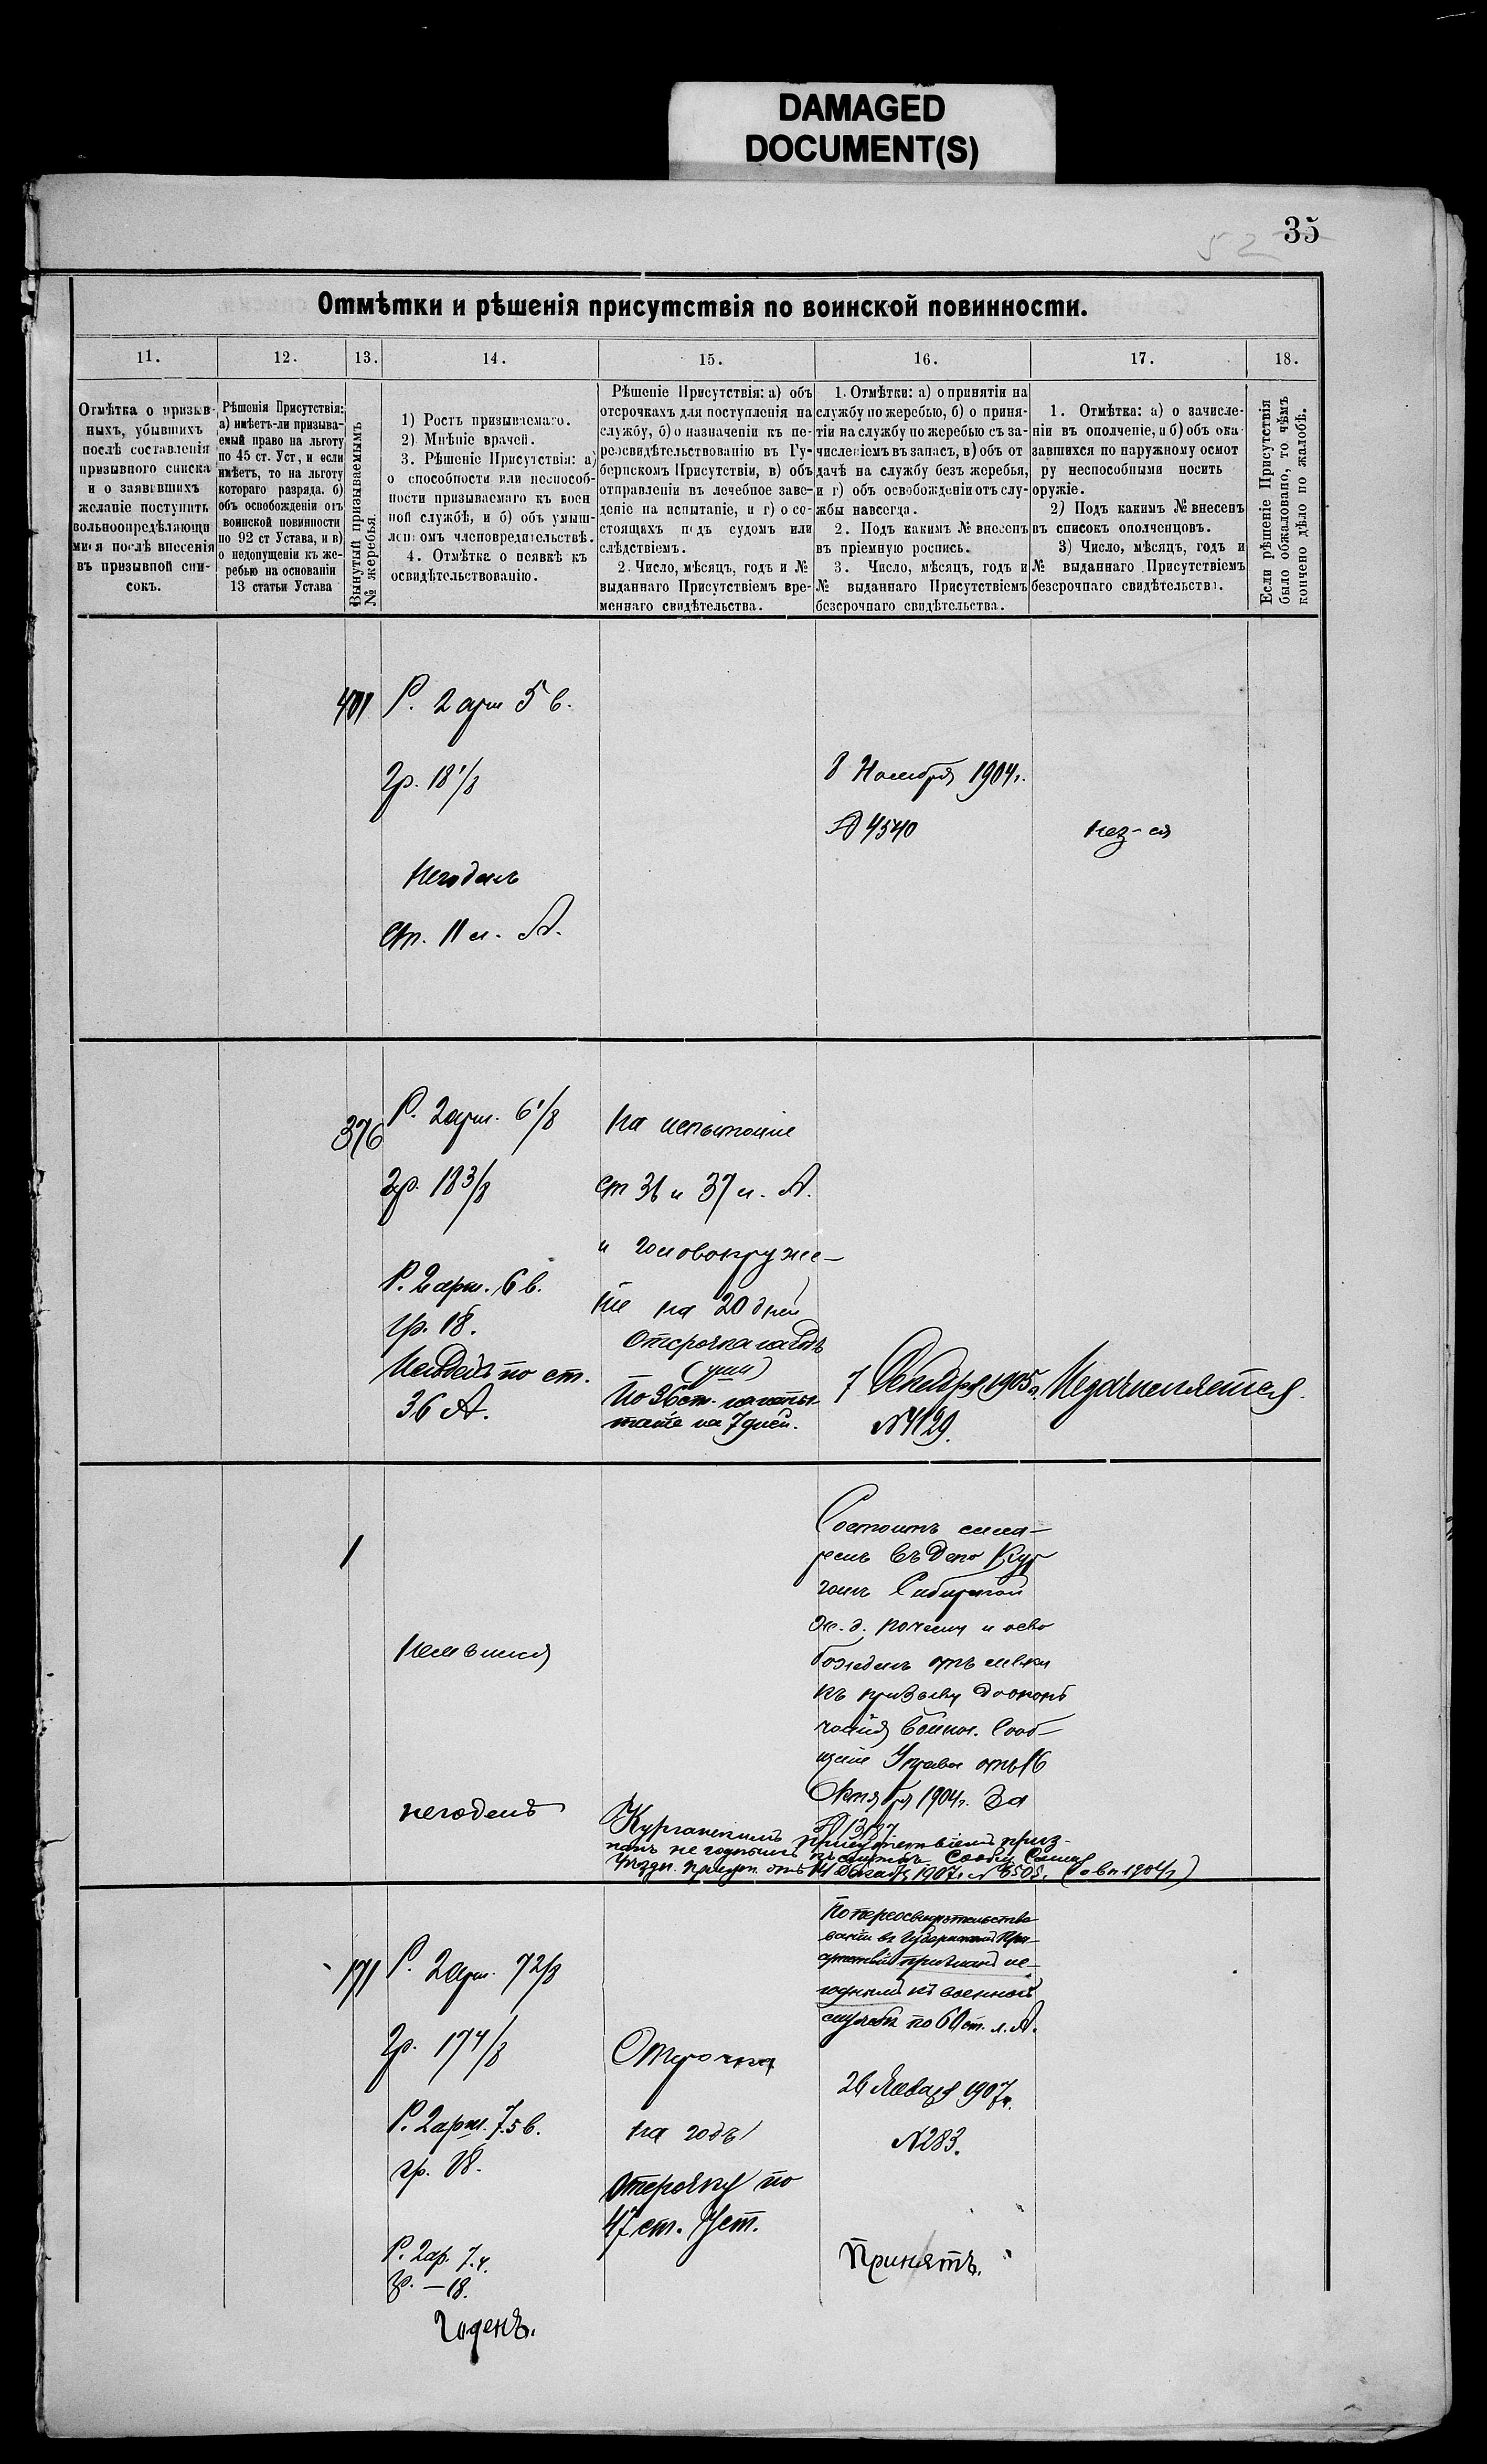 DAMAGED
DOCUMENT(S)
35
52
Отмѣтки и рѣшенія присутствія по воинской повинности.
11.
12.
13.
14.
15.
16.
17.
18.
Отмѣтка о призыв-
ныхъ, убывшихъ
послѣ составленія
призывного списка
и о заявившихъ
желаніе поступить
вольноопредѣляющи
мися послѣ внесенія
въ призывной спи-
сокъ.
Рѣшенія Присутствія:
а) имѣетъ-ли призыва-
емый право на льготу
по 45 ст. Уст, и если
имѣетъ, то на льготу
котораго разряда. б)
объ освобожденіи отъ
воинской повинности
по 92 ст Устава, и в)
о недопущеніи къ же-
ребью на основаніи
13 статьи Устава
Вынутый призываемымъ
№ жеребья.
1) Ростъ призываемаго.
2) Мнѣніе врачей.
3. Рѣшеніе Присутствія: а)
о способности или неспособ-
ности призываемаго къ воен
ной службѣ, и б) объ умыш-
ленномъ членовредительствѣ.
4. Отмѣтка о неявкѣ къ
освидѣтельствованію.
Рѣшеніе Присутствія: а) объ
отсрочкахъ для поступленія на
службу, б) о назначеніи къ пе-
реосвидѣтельствованію въ Гу-
бернскомъ Присутствіи, в) объ
отправленіи въ лечебное заве-
деніе на испытаніе, и г) о со-
стоящахъ подъ судомъ или
слѣдствіемъ.
2. Число, мѣсяцъ, годъ и №
выданнаго Присутствіемъ вре-
меннаго свидѣтельства.
1. Отмѣтки: а) о принятіи на
службу по жеребью, б) о приня-
тіи на службу по жеребью съ за-
численіемъ въ запасъ, в) объ от
дачѣ на службу безъ жеребья,
и г) объ освобожденіи отъ слу-
жбы навсегда.
2. Подъ какимъ № внесенъ
въ пріемную роспись.
3. Число, мѣсяцъ, годъ и
№ выданнаго Присутствіемъ
безсрочнаго свидѣтельства.
1. Отмѣтка: а) о зачисле-
ніи въ ополченіе, и б) объ ока
завшихся по наружному осмот
ру неспособными носить
оружіе.
2) Подъ какимъ № внесенъ
въ списокъ ополченцовъ.
3) Число, мѣсяцъ, годъ и
№ выданнаго Присутствіемъ
безсрочнаго свидѣтельства.
Если рѣшеніе Присутствія
было обжаловано, то чѣмъ
кончено дѣло по жалобѣ.
401
Р. 2 арш 5 в.
Гр. 18 1/8
Негоденъ
Ст. 11 л. А.
8 Ноября 1904 г.
№ 4540
нез-ся
376
Р. 2 арш. 6 1/8
Гр. 18 3/8
Р. 2 арш. 6 в.
гр. 18.
Негоденъ по ст.
36 А.
На испытаніе
ст 36 и 37 л. А.
и головокруже-
ніе на 20 дней
Отсрочка на годъ
По 36 ст. на испы-
таніе на 7 дней.
7 Декабря 1905 г.
№ 4129.
Незачисляется.
1
Неявился
негоденъ
Состоитъ слеса-
ремъ въ Депо Кур
ганъ Сибирской
ж. д. почему и осво
божденъ отъ явки
къ призыву до окон
чанія войны. Сооб-
щеніе Управы отъ 16
Октября 1904 г. За
Курганскимъ присутствіемъ приз-
нанъ не годнымъ къ службѣ. Сообщ.
Уѣздн. присут. отъ 14 1907 г.
171
Р. 2 арш. 7 2/8
Гр. 17 4/8
Р. 2 арш. 7.5 в.
гр. 18.
Р. 2 ар. 7.4.
Гр. — 18.
Годенъ.
Отсрочка
на годъ
Отсрочку по
47 ст. Уст.
По переосвидѣтельство
ваніи въ Губернскомъ При-
сутствіи признанъ не-
годнымъ къ военной
службѣ по 60 ст. л. А.
26 Января 1907 г.
№ 283.
Принятъ.